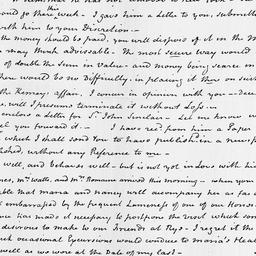 would go there, this week - I gave him a Letter to you, submitte
with him to your Discretion -
the money should be paid, you will dispose of it in the M
may think adviseable. The most secure way would
of double the Sum in value - and money being scarce in
there would be no Difficulty, in placing it there on such
the Kemey's affair, I concur in opinion with you - 
will I presume terminate it without Loss -
enclose a Letter for Sr. John Sinclair - Let me know
you forward it - I have recd. from him a Paper
which I shall send You to have publish'd in a newsp
without any Reference to me -
well, and behaves well - but is not yet in love with his
mr. Watts, and Mr. Romaine arrived this morning - when your
that maria and nancy will accompany her as far a
embarrassed by the frequent Lameness of one of our Horses
has made it necessary to postpone the Visit which some
desirous to make to our Friends at Rye - I regret it the
such occasional Excursions would conduce to maria's Heal
well as we were at the Date of my last -